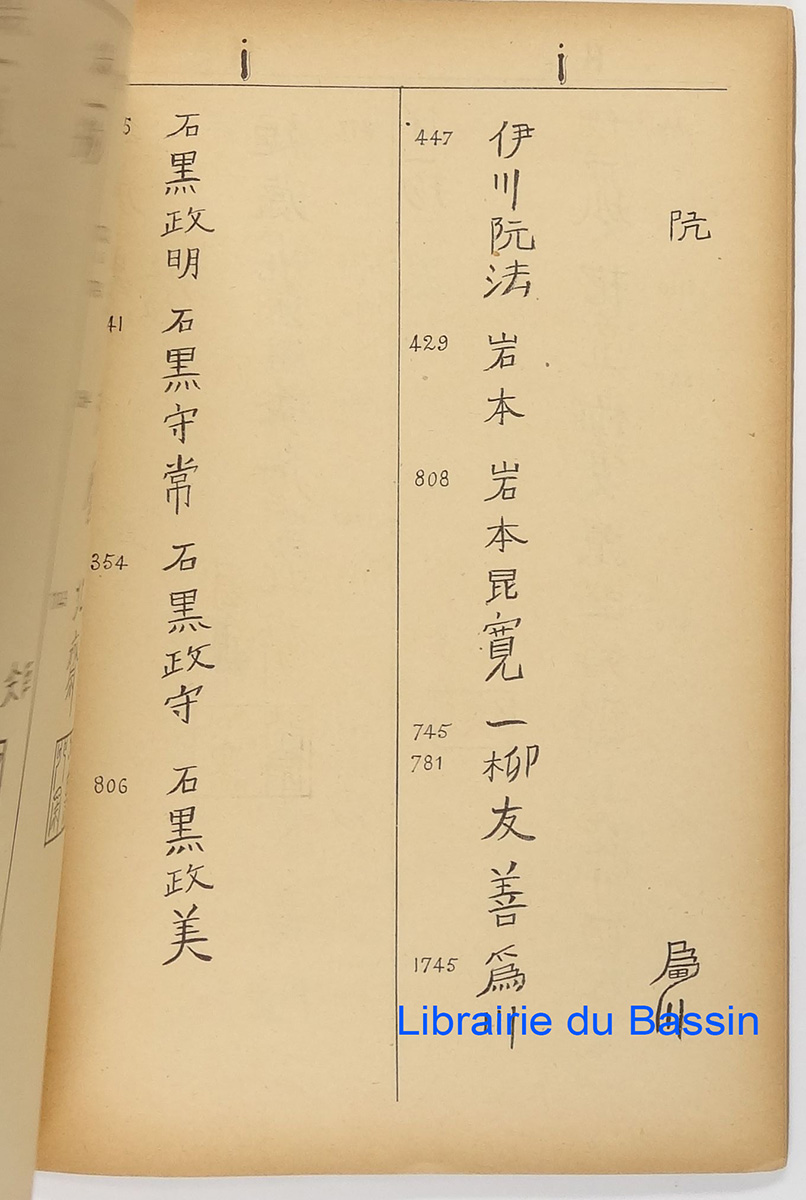 i
5
石黒政明
41
石黒守常
354
石黒政守
806
石黒政美
i
447
伊川阮法
阮
429
岩本
808
岩本昆寛
745
781
一柳友善
1745
爲川
Librairie du Bassin